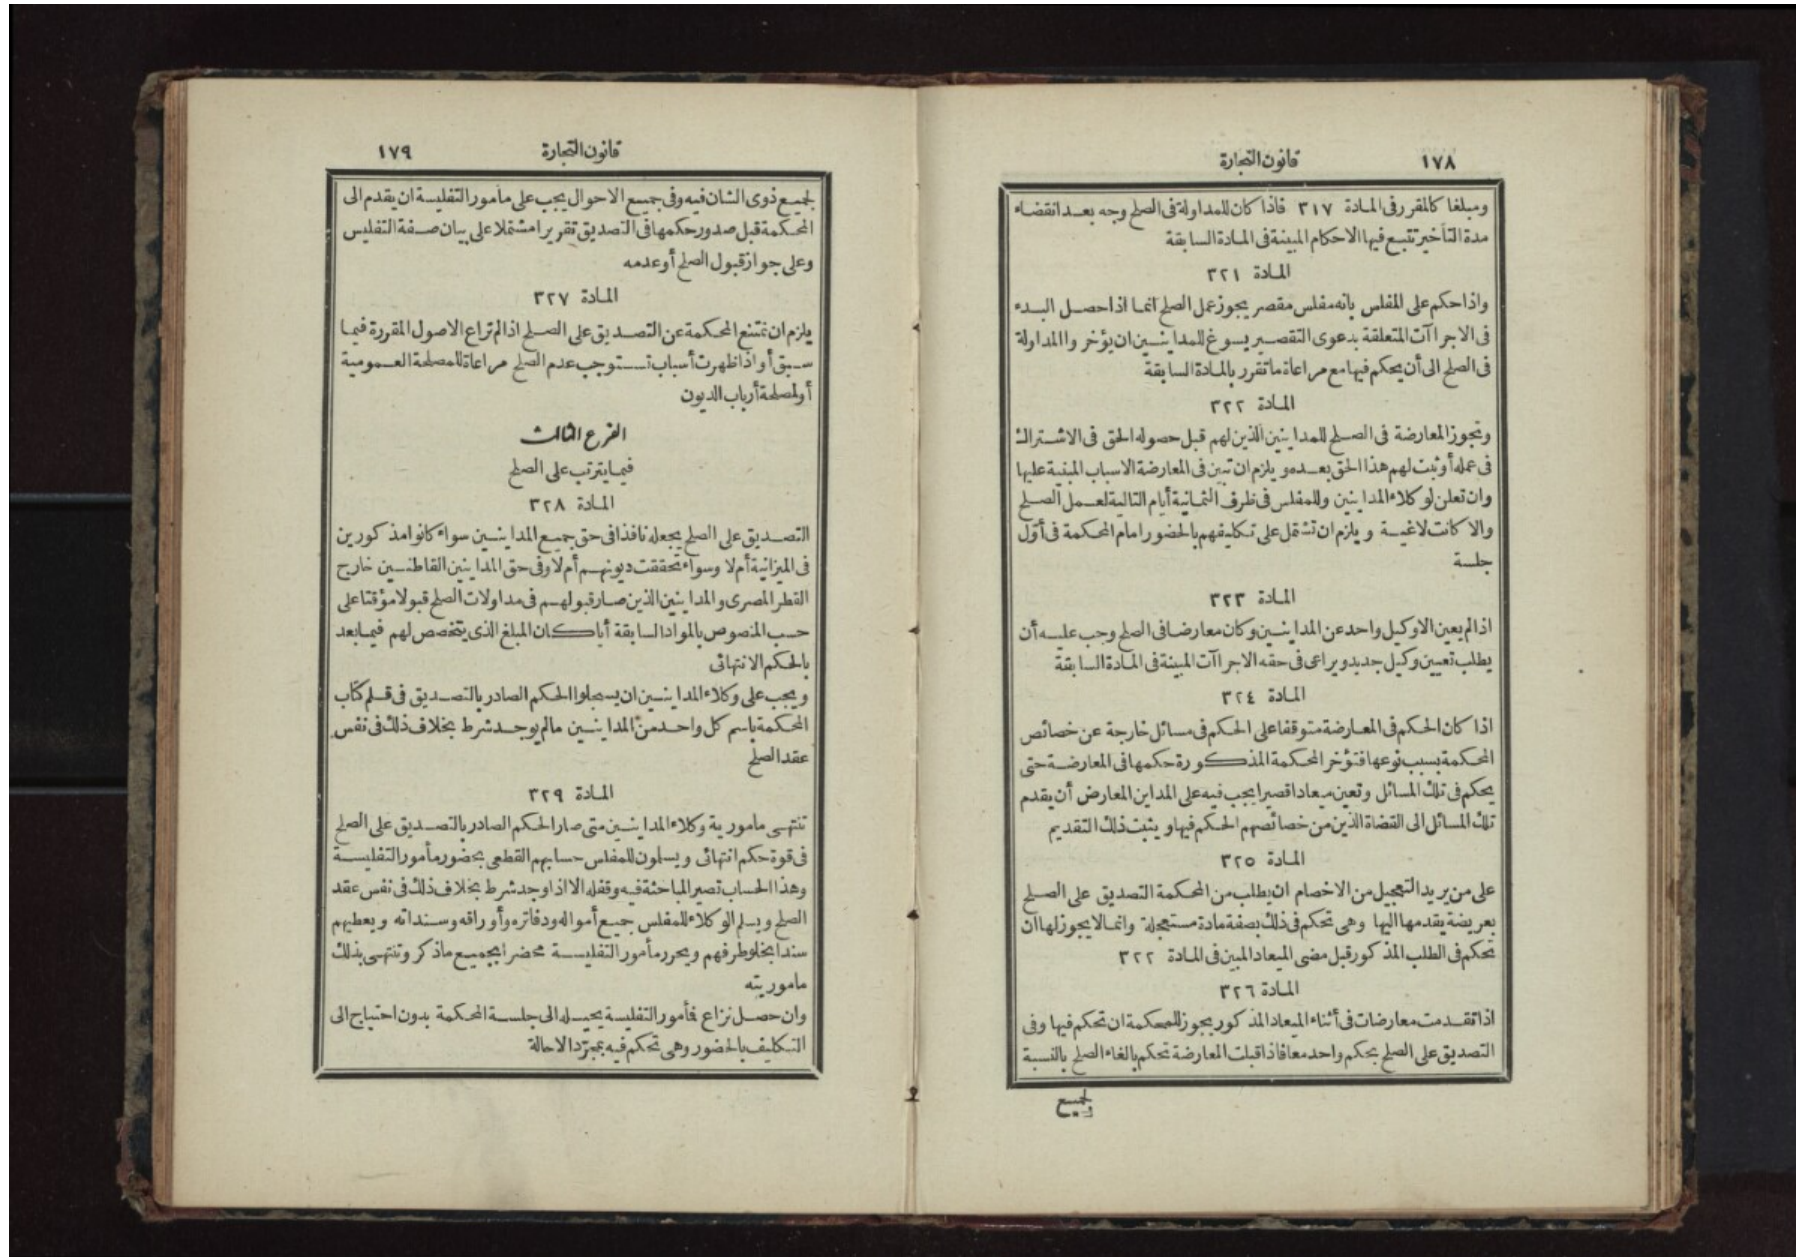 ١٧٨
قانون التجارة
ومبلغا كالمقرر فى المادة ٣١٧ فاذا كان للمداولة فى الصلح وجه بعد انقضاء
مدة التأخير تتبع فيها الاحكام المبينة فى المادة السابقة
المادة ٣٢١
واذا حكم على المفلس بانه مفلس مقصر يجوز عمل الصلح انما اذا حصل البدء
فى الاجراآت المتعلقة بدعوى التقصير يسوغ للمداينين ان يؤخروا المداولة
فى الصلح الى أن يحكم فيها مع مراعاة ما تقرر بالمادة السابقة
المادة ٣٢٢
وتجوز المعارضة فى الصلح للمداينين الذين لهم قبل حصوله الحق فى الاشتراك
فى عمله أو ثبت لهم هذا الحق بعده ويلزم ان تبين فى المعارضة الاسباب المبنية عليها
وان تعلن لوكلاء المداينين وللمفلس فى ظرف الثمانية أيام التالية لعمل الصلح
والا كانت لاغية ويلزم ان تشتمل على تكليفهم بالحضور امام المحكمة فى أول
جلسة
المادة ٣٢٣
اذا لم يعين الا وكيل واحد عن المداينين وكان معارضا فى الصلح وجب عليه أن
يطلب تعيين وكيل جديد ويراعى فى حقه الاجراآت المبينة فى المادة السابقة
المادة ٣٢٤
اذا كان الحكم فى المعارضة متوقفا على الحكم فى مسائل خارجة عن خصائص
المحكمة بسبب نوعها فتؤخر المحكمة المذكورة حكمها فى المعارضة حتى
يحكم فى تلك المسائل وتعين ميعادا قصيرا يجب فيه على المداين المعارض أن يقدم
تلك المسائل الى القضاة الذين من خصائصهم الحكم فيها ويثبت ذلك التقديم
المادة ٣٢٥
على من يريد التعجيل من الاخصام ان يطلب من المحكمة التصديق على الصلح
بعريضة يقدمها اليها وهى تحكم فى ذلك بصفة مادة مستعجلة وانما لا يجوز لها أن
تحكم فى الطلب المذكور قبل مضى الميعاد المبين فى المادة ٣٢٢
المادة ٣٢٦
اذا تقدمت معارضات فى أثناء الميعاد المذكور يجوز للمحكمة ان تحكم فيها وفى
التصديق على الصلح بحكم واحد معا فاذا قبلت المعارضة تحكم بالغاء الصلح بالنسبة
لجميع
١٧٩
قانون التجارة
لجميع ذوى الشان فيه وفى جميع الاحوال يجب على مأمور التفليسة ان يقدم الى
المحكمة قبل صدور حكمها فى التصديق تقريرا مشتملا على بيان صفة التفليس
وعلى جواز قبول الصلح أو عدمه
المادة ٣٢٧
يلزم ان تمتنع المحكمة عن التصديق على الصلح اذا لم تراع الاصول المقررة فيما
سبق أو اذا ظهرت أسباب تستوجب عدم الصلح مراعاة للمصلحة العمومية
أو لمصلحة أرباب الديون
الفرع الثالث
فيما يترتب على الصلح
المادة ٣٢٨
التصديق على الصلح يجعله نافذا فى حق جميع المداينين سواء كانوا مذكورين
فى الميزانية أم لا وسواء تحققت ديونهم أم لا وفى حق المداينين القاطنين خارج
القطر المصرى والمداينين الذين صار قبولهم فى مداولات الصلح قبولا مؤقتا على
حسب المنصوص بالمواد السابقة أيا كان المبلغ الذى يتخصص لهم فيما بعد
بالحكم الانتهائى
ويجب على وكلاء المداينين ان يسجلوا الحكم الصادر بالتصديق فى قلم كتاب
المحكمة باسم كل واحد من المداينين مالم يوجد شرط بخلاف ذلك فى نفس
عقد الصلح
المادة ٣٢٩
تنتهى مامورية وكلاء المداينين متى صار الحكم الصادر بالتصديق على الصلح
فى قوة حكم انتهائى ويسلمون للمفلس حسابهم القطعى بحضور مأمور التفليسة
وهذا الحساب تصير المباحثة فيه وقفله الا اذا وجد شرط بخلاف ذلك فى نفس عقد
الصلح ويسلم الوكلاء للمفلس جميع أمواله ودفاتره وأوراقه وسنداته ويعطيهم
سندا بخلو طرفهم ويحرر مأمور التفليسة محضرا بجميع ماذكر وتنتهى بذلك
ماموريته
وان حصل نزاع فمأمور التفليسة يحيله الى جلسة المحكمة بدون احتياج الى
التكليف بالحضور وهى تحكم فيه بمجرّد الاحالة